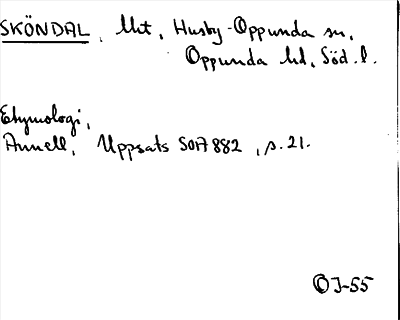 SKÖNDAL, Ut, Husby-Oppunda sn,
Oppunda hd, Söd. l.
Etymologi,
Annell, Uppsats SOA 882, s. 21.
OJ-55